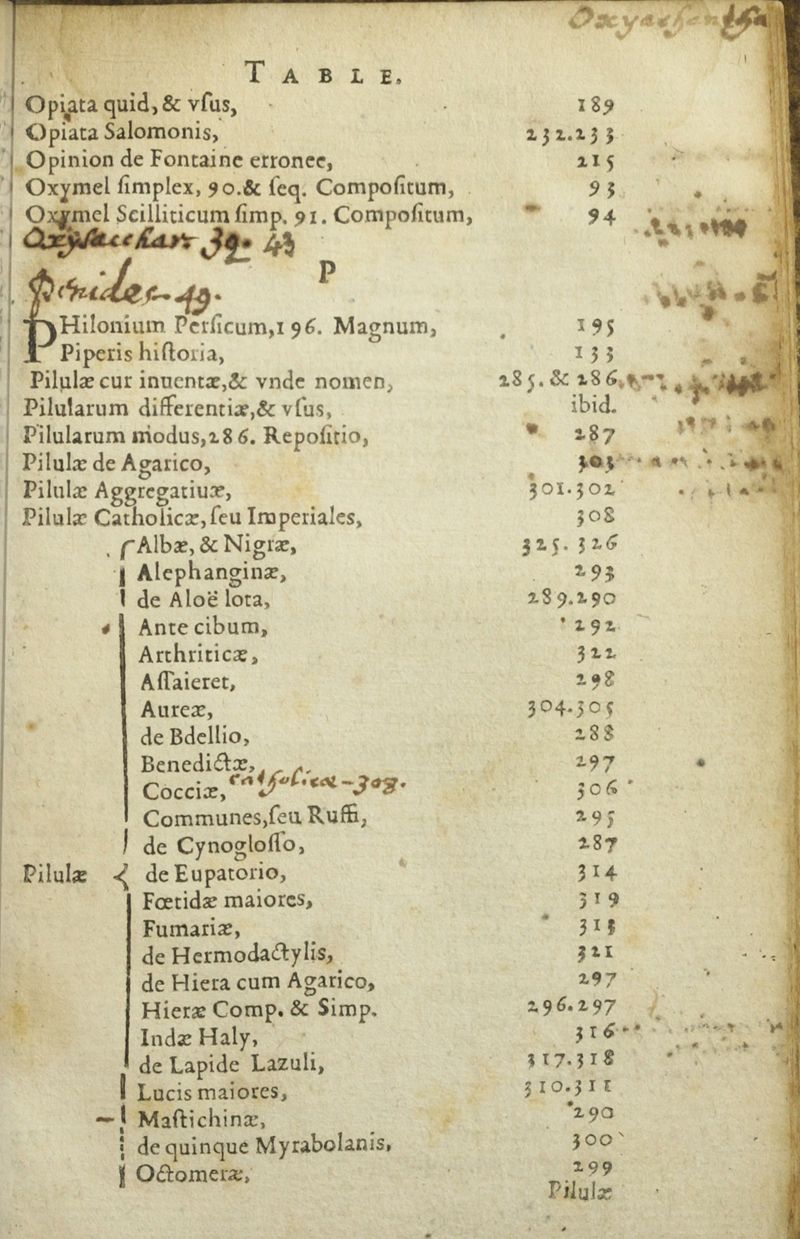 TABLE.
Opiata quid, & vſus, 189
Opiata Salomonis, 232.233
Opinion de Fontaine erronee, 215
Oxymel ſimplex, 90.& ſeq. Compoſitum, 93
Oxymel Scilliticum ſimp. 91. Compoſitum, 94
39. 43
P
49.
PHilonium Perſicum, 196. Magnum, 195
Piperis hiſtoria, 133
Pilulæ cur inuentæ, & vnde nomen, 285. & 286.
Pilularum differentiæ, & vſus, ibid.
Pilularum modus, 286. Repoſitio, 287
Pilulæ de Agarico, 303
Pilulæ Aggregatiuæ, 301.302
Pilulæ Catholicæ, ſeu Imperiales, 308
Albæ, & Nigræ, 325. 326
Alephanginæ, 293
de Aloë lota, 289.290
Ante cibum, 292
Arthriticæ, 322
Aſſaieret, 298
Aureæ, 304.305
de Bdellio, 288
Benedictæ, 297
Cocciæ, 306
Communes, ſeu Ruffi, 295
de Cynogloſſo, 287
Pilulæ de Eupatorio, 314
Fœtidæ maiores, 319
Fumariæ, 313
de Hermodactylis, 321
de Hiera cum Agarico, 297
Hieræ Comp. & Simp. 296.297
Indæ Haly, 316
de Lapide Lazuli, 317.318
Lucis maiores, 310.311
Maſtichinæ, 290
de quinque Myrabolanis, 300
Octomeræ, 299
Pilulæ